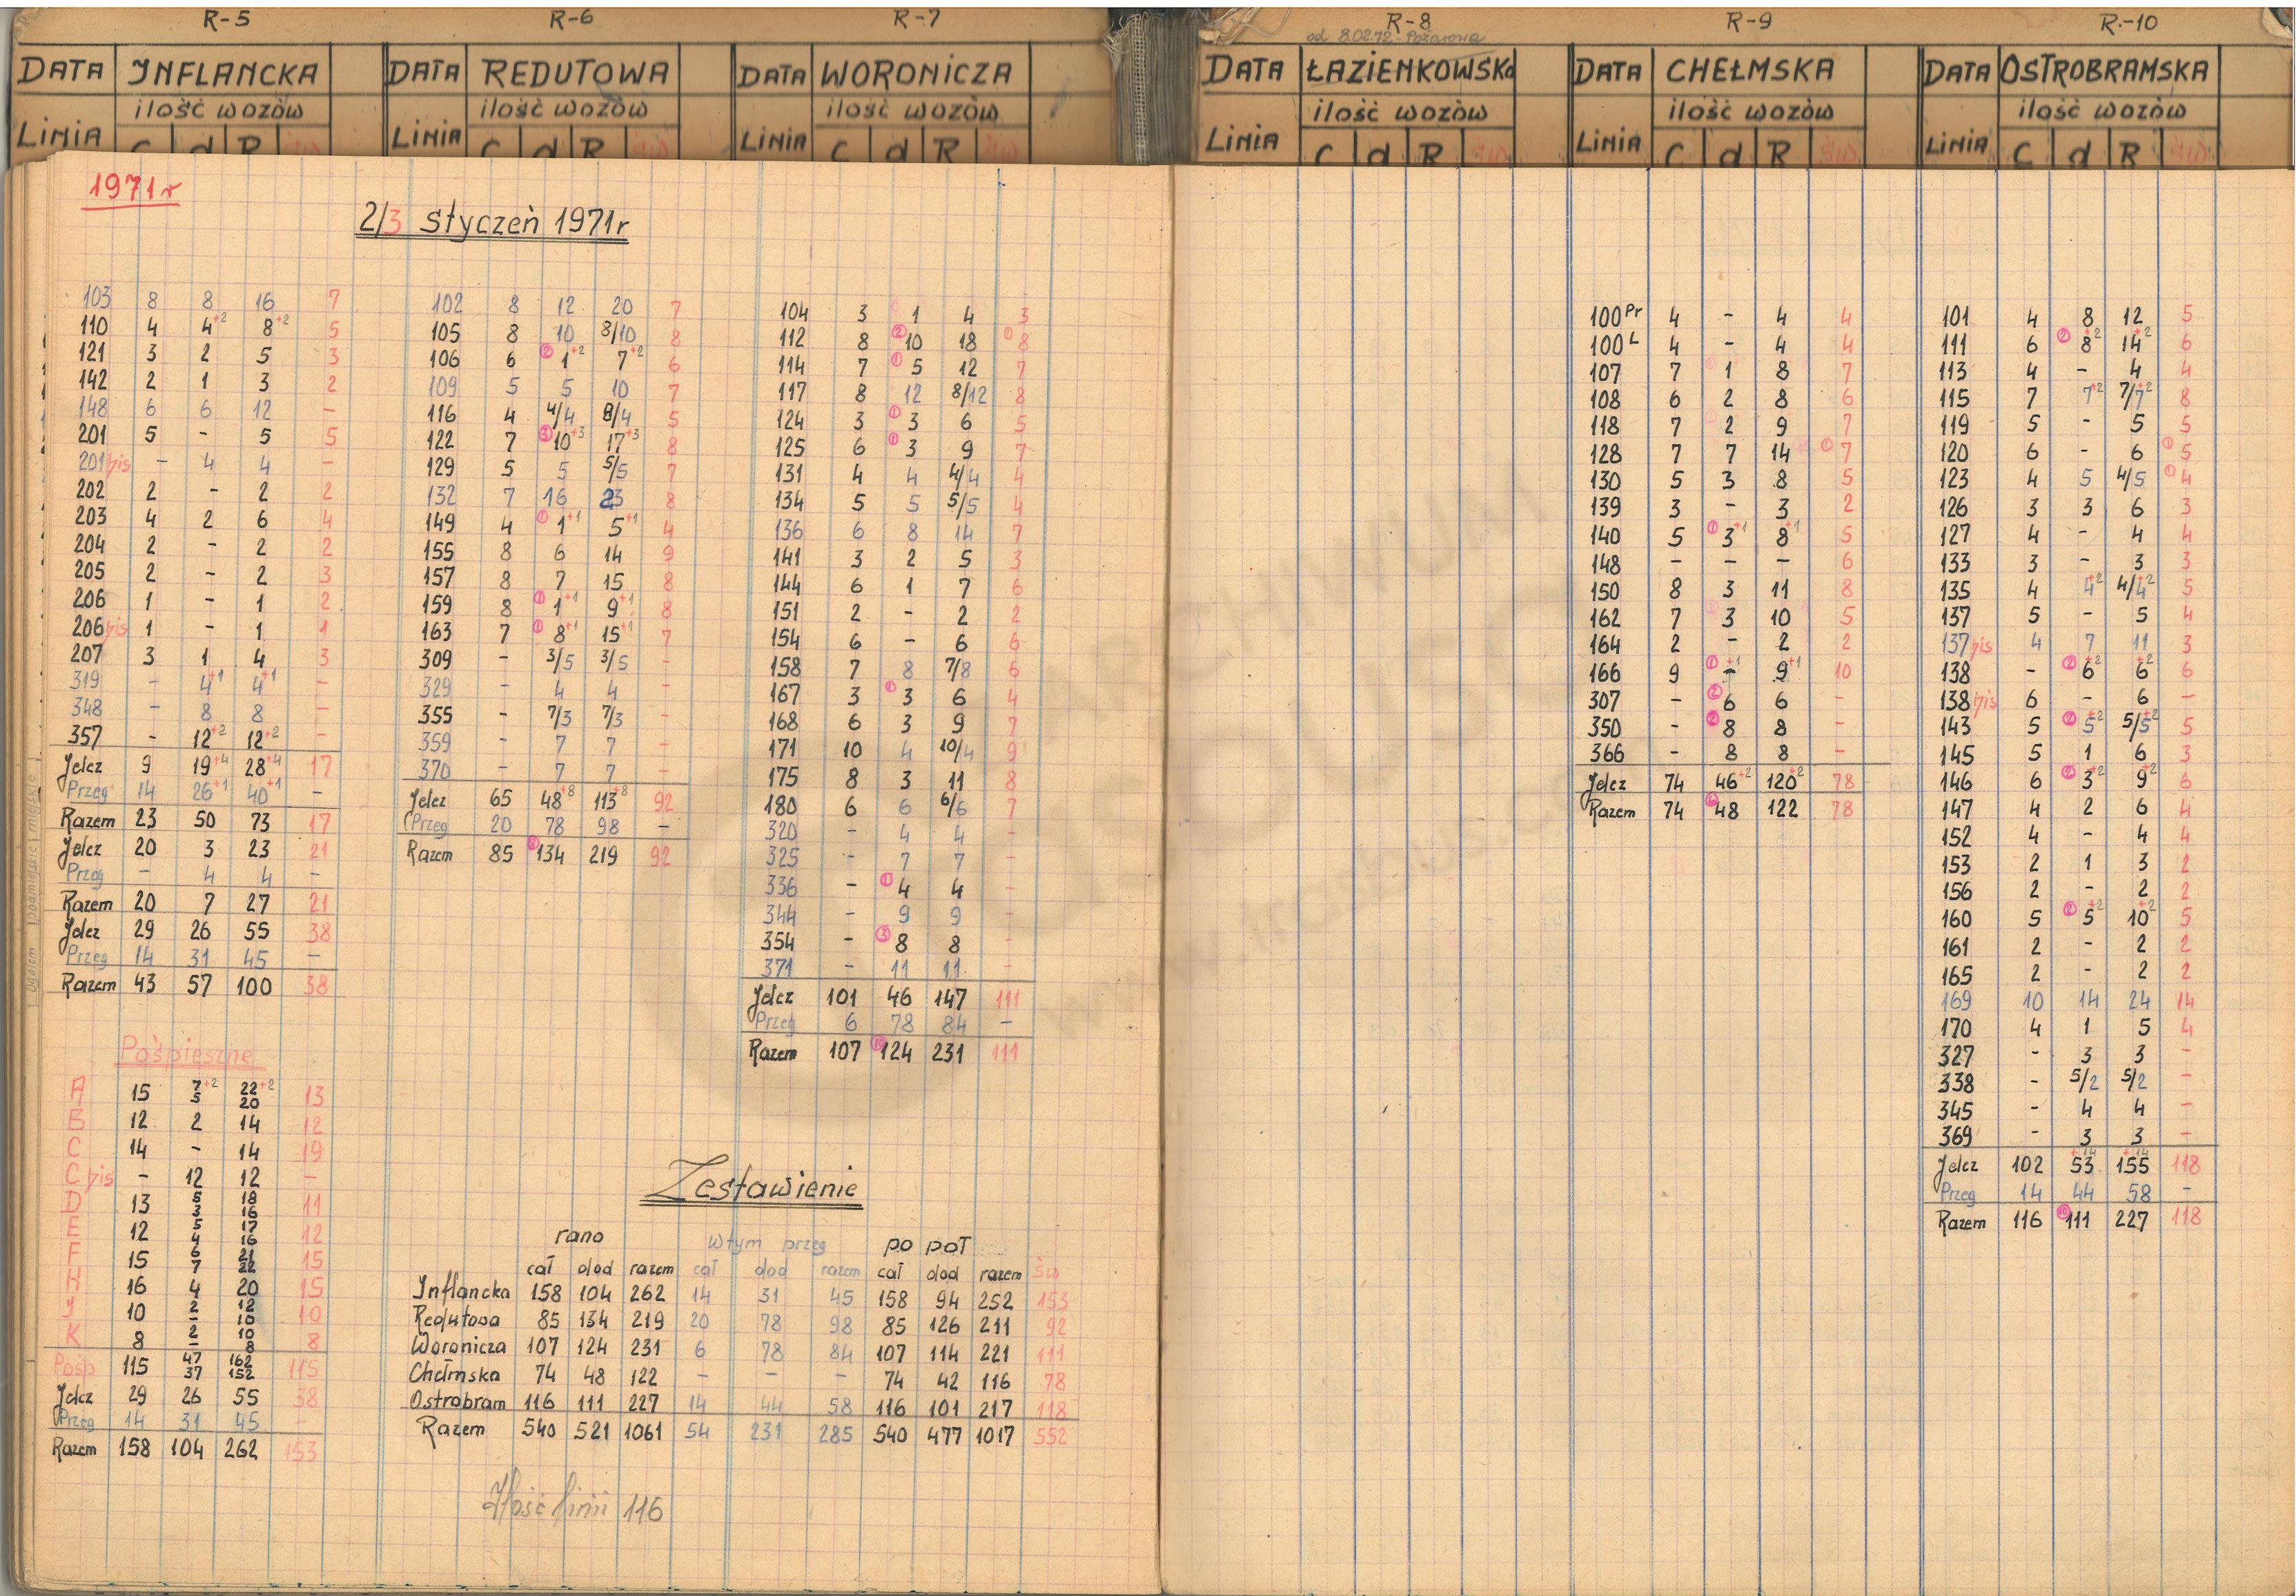 R-5 R-6 R-7 R-8 R-9 R.-10
od 8.02.72 - Pożarowa
DATA INFLANCKA DATA REDUTOWA DATA WORONICZA DATA ŁAZIENKOWSKA DATA CHEŁMSKA DATA OSTROBRAMSKA
ilość wozów ilość wozów ilość wozów ilość wozów ilość wozów ilość wozów
LINIA C d R św LINIA C d R św LINIA C d R św LINIA C d R LINIA C d R św LINIA C d R św
1971r
2/3 Styczeń 1971r
103 8 8 16 7
110 4 4+2 8+2 5
121 3 2 5 3
142 2 1 3 2
148 6 6 12 -
201 5 - 5 5
201bis - 4 4 -
202 2 - 2 2
203 4 2 6 4
204 2 - 2 2
205 2 - 2 3
206 1 - 1 2
206bis 1 - 1 1
207 3 1 4 3
319 - 4+1 4+1 -
348 - 8 8 -
357 - 12+2 12+2 -
Jelcz 9 19+4 28+4 17
Przeg 14 26+1 40+1 -
Razem 23 50 73 17
Jelcz 20 3 23 21
Przeg - 4 4 -
Razem 20 7 27 21
Jelcz 29 26 55 38
Przeg 14 31 45 -
Razem 43 57 100 38
ogółem podmiejskie miejskie
Pośpieszne
A 15 7+2 22+2 13
5 20
B 12 2 14 12
C 14 - 14 19
C bis - 12 12 -
D 13 5 18 11
3 16
E 12 5 17 12
4 16
F 15 6 21 15
7 22
H 16 4 20 15
J 10 2 12 10
- 10
K 8 2 10 8
- 8
Pośp 115 47 162 115
37 152
Jelcz 29 26 55 38
Przeg 14 31 45 -
Razem 158 104 262 153
102 8 12 20 7
105 8 10 8/10 8
106 6 ② 1+2 7+2 6
109 5 5 10 7
116 4 4/4 8/4 5
122 7 ③ 10+3 17+3 8
129 5 5 5/5 7
132 7 16 23 8
149 4 ① 1+1 5+1 4
155 8 6 14 9
157 8 7 15 8
159 8 ① 1+1 9+1 8
163 7 ① 8+1 15+1 7
309 - 3/5 3/5 -
329 - 4 4 -
355 - 7/3 7/3 -
359 - 7 7 -
370 - 7 7 -
Jelcz 65 48+8 113+8 92
Przeg 20 78 98 -
Razem 85 134 219 92
104 3 1 4 3
112 8 ② 10 18 ① 8
114 7 ① 5 12 7
117 8 12 8/12 8
124 3 ① 3 6 5
125 6 ① 3 9 7
131 4 4 4/4 4
134 5 5 5/5 4
136 6 8 14 7
141 3 2 5 3
144 6 1 7 6
151 2 - 2 2
154 6 - 6 6
158 7 8 7/8 6
167 3 ① 3 6 4
168 6 3 9 7
171 10 4 10/4 9
175 8 3 11 8
180 6 6 6/6 7
320 - 4 4 -
325 - 7 7 -
336 - ① 4 4 -
344 - 9 9 -
354 - ③ 8 8 -
371 - 11 11 -
Jelcz 101 46 147 111
Przeg 6 78 84 -
Razem 107 ⑩ 124 231 111
Zestawienie
rano wtym przeg po poł
cał dod razem cał dod razem cał dod razem św
Inflancka 158 104 262 14 31 45 158 94 252 153
Redutowa 85 134 219 20 78 98 85 126 211 92
Woronicza 107 124 231 6 78 84 107 114 221 111
Chełmska 74 48 122 - - - 74 42 116 78
Ostrobram 116 111 227 14 44 58 116 101 217 118
Razem 540 521 1061 54 231 285 540 477 1017 552
Ilość linii 116
100Pr 4 - 4 4
100L 4 - 4 4
107 7 1 8 7
108 6 2 8 6
118 7 2 9 7
128 7 7 14 ① 7
130 5 3 8 5
139 3 - 3 2
140 5 ① 3+1 8+1 5
148 - - - 6
150 8 3 11 8
162 7 3 10 5
164 2 - 2 2
166 9 ① -+1 9+1 10
307 - ② 6 6 -
350 - ② 8 8 -
366 - 8 8 -
Jelcz 74 46+2 120+2 78
Razem 74 ⑥ 48 122 78
101 4 8 12 5
111 6 ② 8+2 14+2 6
113 4 - 4 4
115 7 7+2 7/7+2 8
119 5 - 5 5
120 6 - 6 ① 5
123 4 5 4/5 ① 4
126 3 3 6 3
127 4 - 4 4
133 3 - 3 3
135 4 4+2 4/4+2 5
137 5 - 5 4
137bis 4 7 11 3
138 - ② 6+2 6+2 6
138bis 6 - 6 -
143 5 ② 5+2 5/5+2 5
145 5 1 6 3
146 6 ② 3+2 9+2 6
147 4 2 6 4
152 4 - 4 4
153 2 1 3 2
156 2 - 2 2
160 5 ② 5+2 10+2 5
161 2 - 2 2
165 2 - 2 2
169 10 14 24 14
170 4 1 5 4
327 - 3 3 -
338 - 5/2 5/2 -
345 - 4 4 -
369 - 3 3 -
Jelcz 102 53+14 155+14 118
Przeg 14 44 58 -
Razem 116 ⑩ 111 227 118